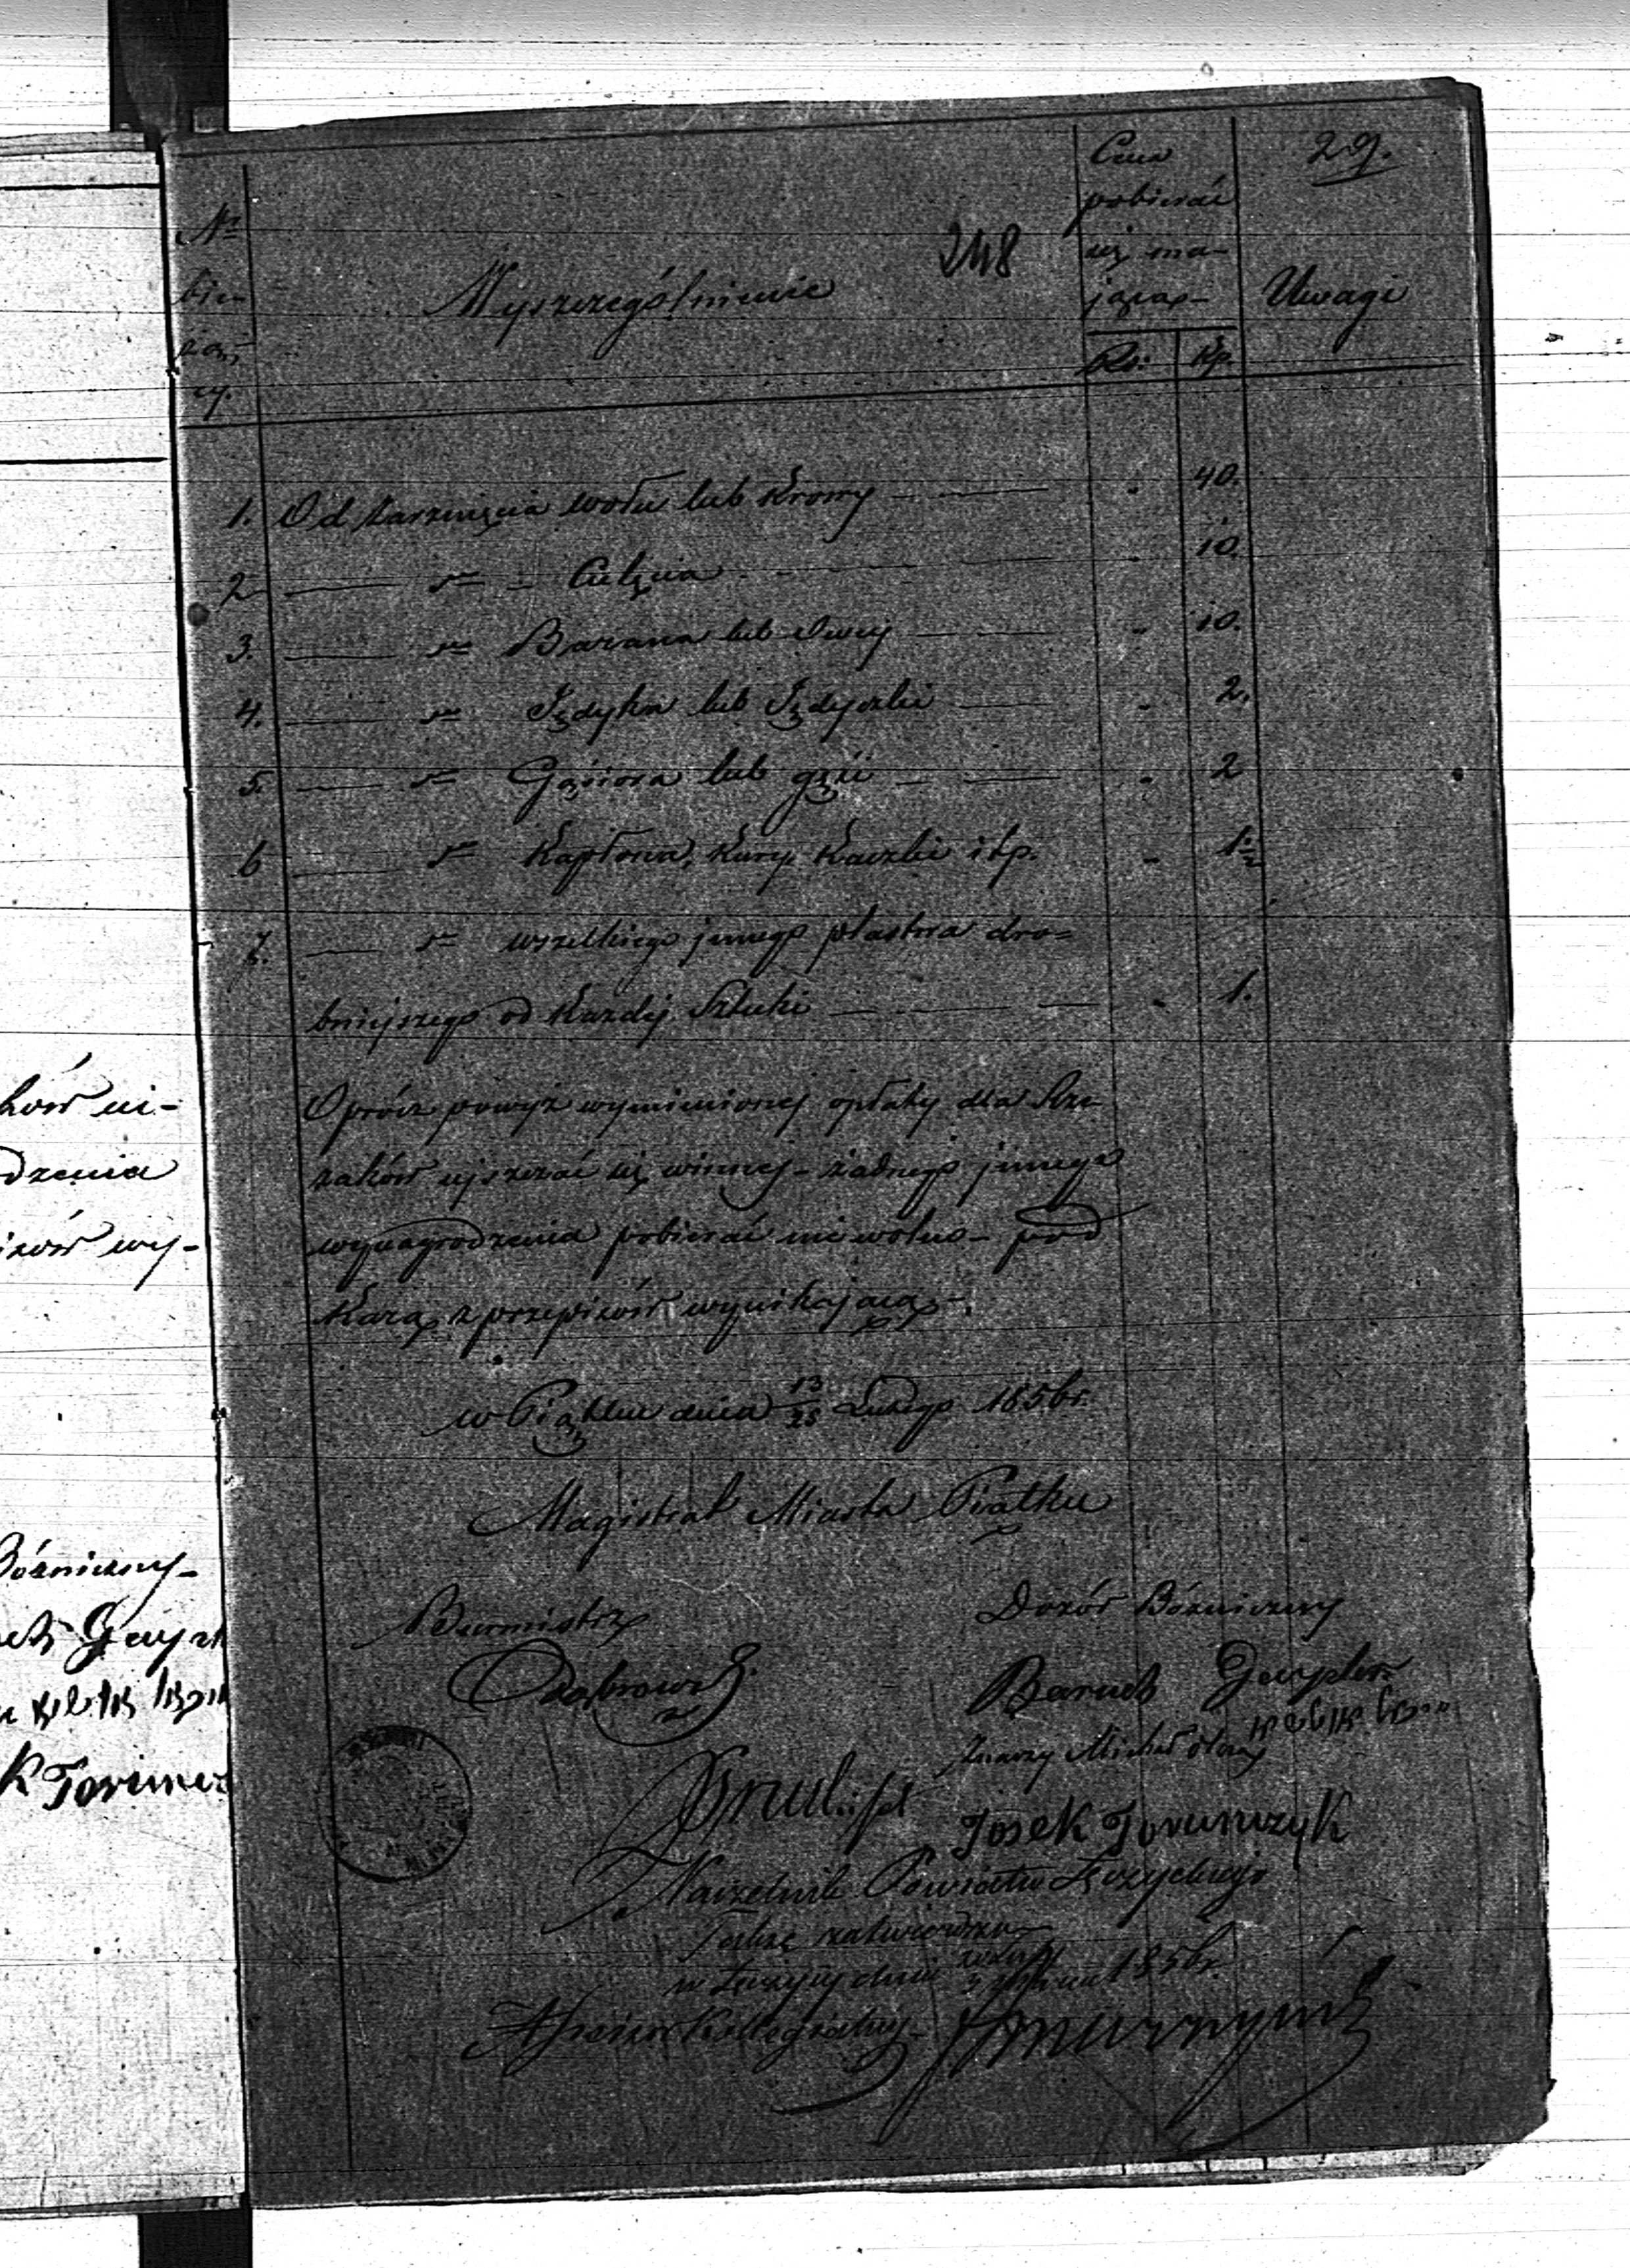 29.
248
Nr
bie-
żą-
cy.
Wyszczególnienie
Cena
pobierać
się ma-
jąca-
Uwagi
Rs: Kp.
1. Od zarznięcia wołu lub Krowy " 40.
2 Cielęcia " 10.
3. Barana lub Owcy " 10.
4. Jędyka lub Jędyczki " 2.
5. Gąsiora lub gęsi " 2
6 Kapłona, Kury, Kaczki itp. " 1 1/2
7. wszelkiego innego ptastwa dro=
bniejszego od Każdej Sztuki " 1.
Oprócz powyż wymienionej opłaty dla Rze-
zaków ujszczać się winnej - żadnego innego
wynagrodzenia pobierać niewolno - pod
Karą z przepisów wynikającą -
w Piątku dnia 13/25 Lutego 1856 r.
Magistrat Miasta Piątku
Burmistrz
Dozór Bóźniczny
Dąbrowski
Baruch
Znaczy Michał
Josek Torunczyk
Naczelnik Powiatu Łęczyckiego
Taksę zatwierdza
w Łęczycy dnia 1856 r.
Assesor Kollegialny
ków ni-
dzenia
isów wy-
Bóźniczny-
K Toruncz